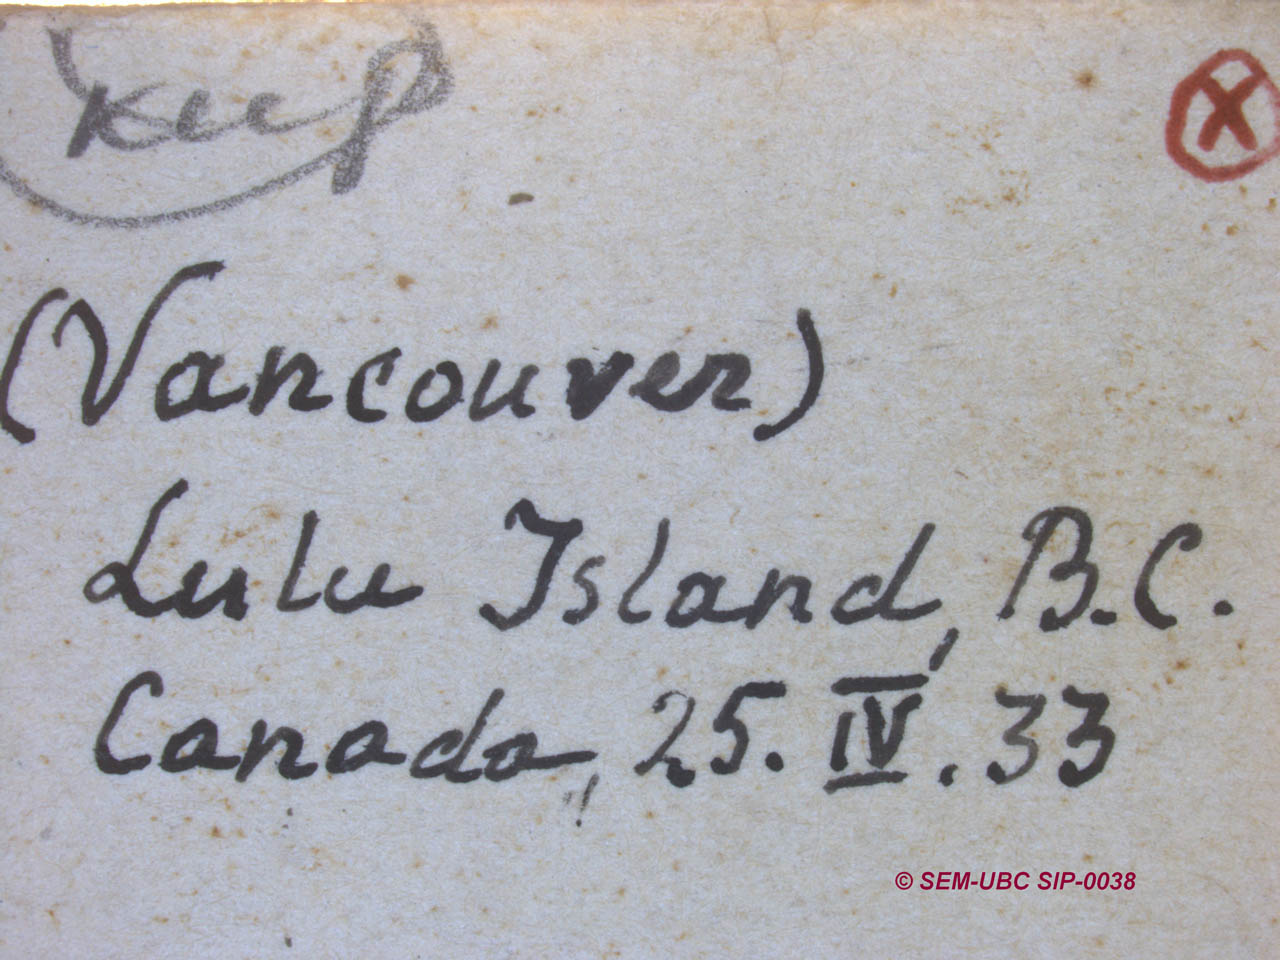 X
(Vancouver)
Lulu Island, B.C.
Canada, 25.IV.33
© SEM-UBC SIP-0038